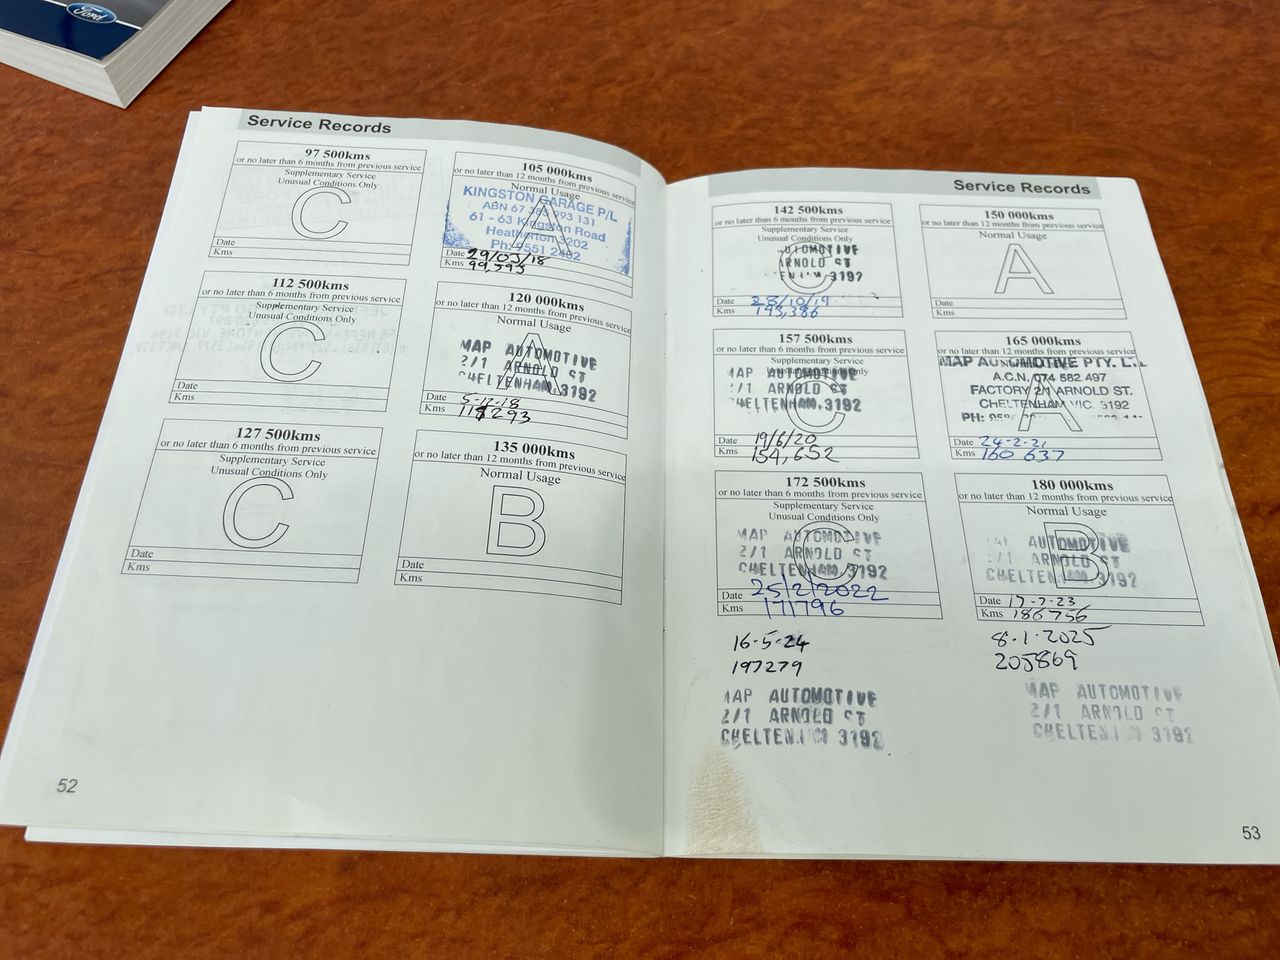 Ford
Service Records
97 500kms
or no later than 6 months from previous service
Supplementary Service
Unusual Conditions Only
C
Date
Kms
105 000kms
or no later than 12 months from previous service
Normal Usage
A
KINGSTON GARAGE P/L
ABN 67 365 993 131
61 - 63 Kingston Road
Heatherton 3202
Ph: 9551 2402
Date 29/05/18
Kms 99,595
112 500kms
or no later than 6 months from previous service
Supplementary Service
Unusual Conditions Only
C
Date
Kms
120 000kms
or no later than 12 months from previous service
Normal Usage
A
MAP AUTOMOTIVE
2/1 ARNOLD ST
CHELTENHAM 3192
Date 5-12-18
Kms
127 500kms
or no later than 6 months from previous service
Supplementary Service
Unusual Conditions Only
C
Date
Kms
135 000kms
or no later than 12 months from previous service
Normal Usage
B
Date
Kms
52
Service Records
142 500kms
or no later than 6 months from previous service
Supplementary Service
Unusual Conditions Only
C
AUTOMOTIVE
ARNOLD ST
3192
Date 28/10/19
Kms 143,386
150 000kms
or no later than 12 months from previous service
Normal Usage
A
Date
Kms
157 500kms
or no later than 6 months from previous service
Supplementary Service
Unusual Conditions Only
C
MAP AUTOMOTIVE
2/1 ARNOLD ST
CHELTENHAM 3192
Date 19/6/20
Kms 154,652
165 000kms
or no later than 12 months from previous service
Normal Usage
A
MAP AUTOMOTIVE PTY. LTD.
A.C.N. 074 582 497
FACTORY 2/1 ARNOLD ST.
CHELTENHAM VIC. 3192
PH:
Date 24-2-21
Kms 160 637
172 500kms
or no later than 6 months from previous service
Supplementary Service
Unusual Conditions Only
C
MAP AUTOMOTIVE
2/1 ARNOLD ST
CHELTENHAM 3192
Date 25/2/2022
Kms 171796
180 000kms
or no later than 12 months from previous service
Normal Usage
B
AUTOMOTIVE
2/1 ARNOLD ST
CHELTENHAM 3192
Date 17-7-23
Kms 186756
16-5-24
197279
MAP AUTOMOTIVE
2/1 ARNOLD ST
CHELTENHAM 3192
8-1-2025
205869
MAP AUTOMOTIVE
2/1 ARNOLD ST
CHELTENHAM 3192
53